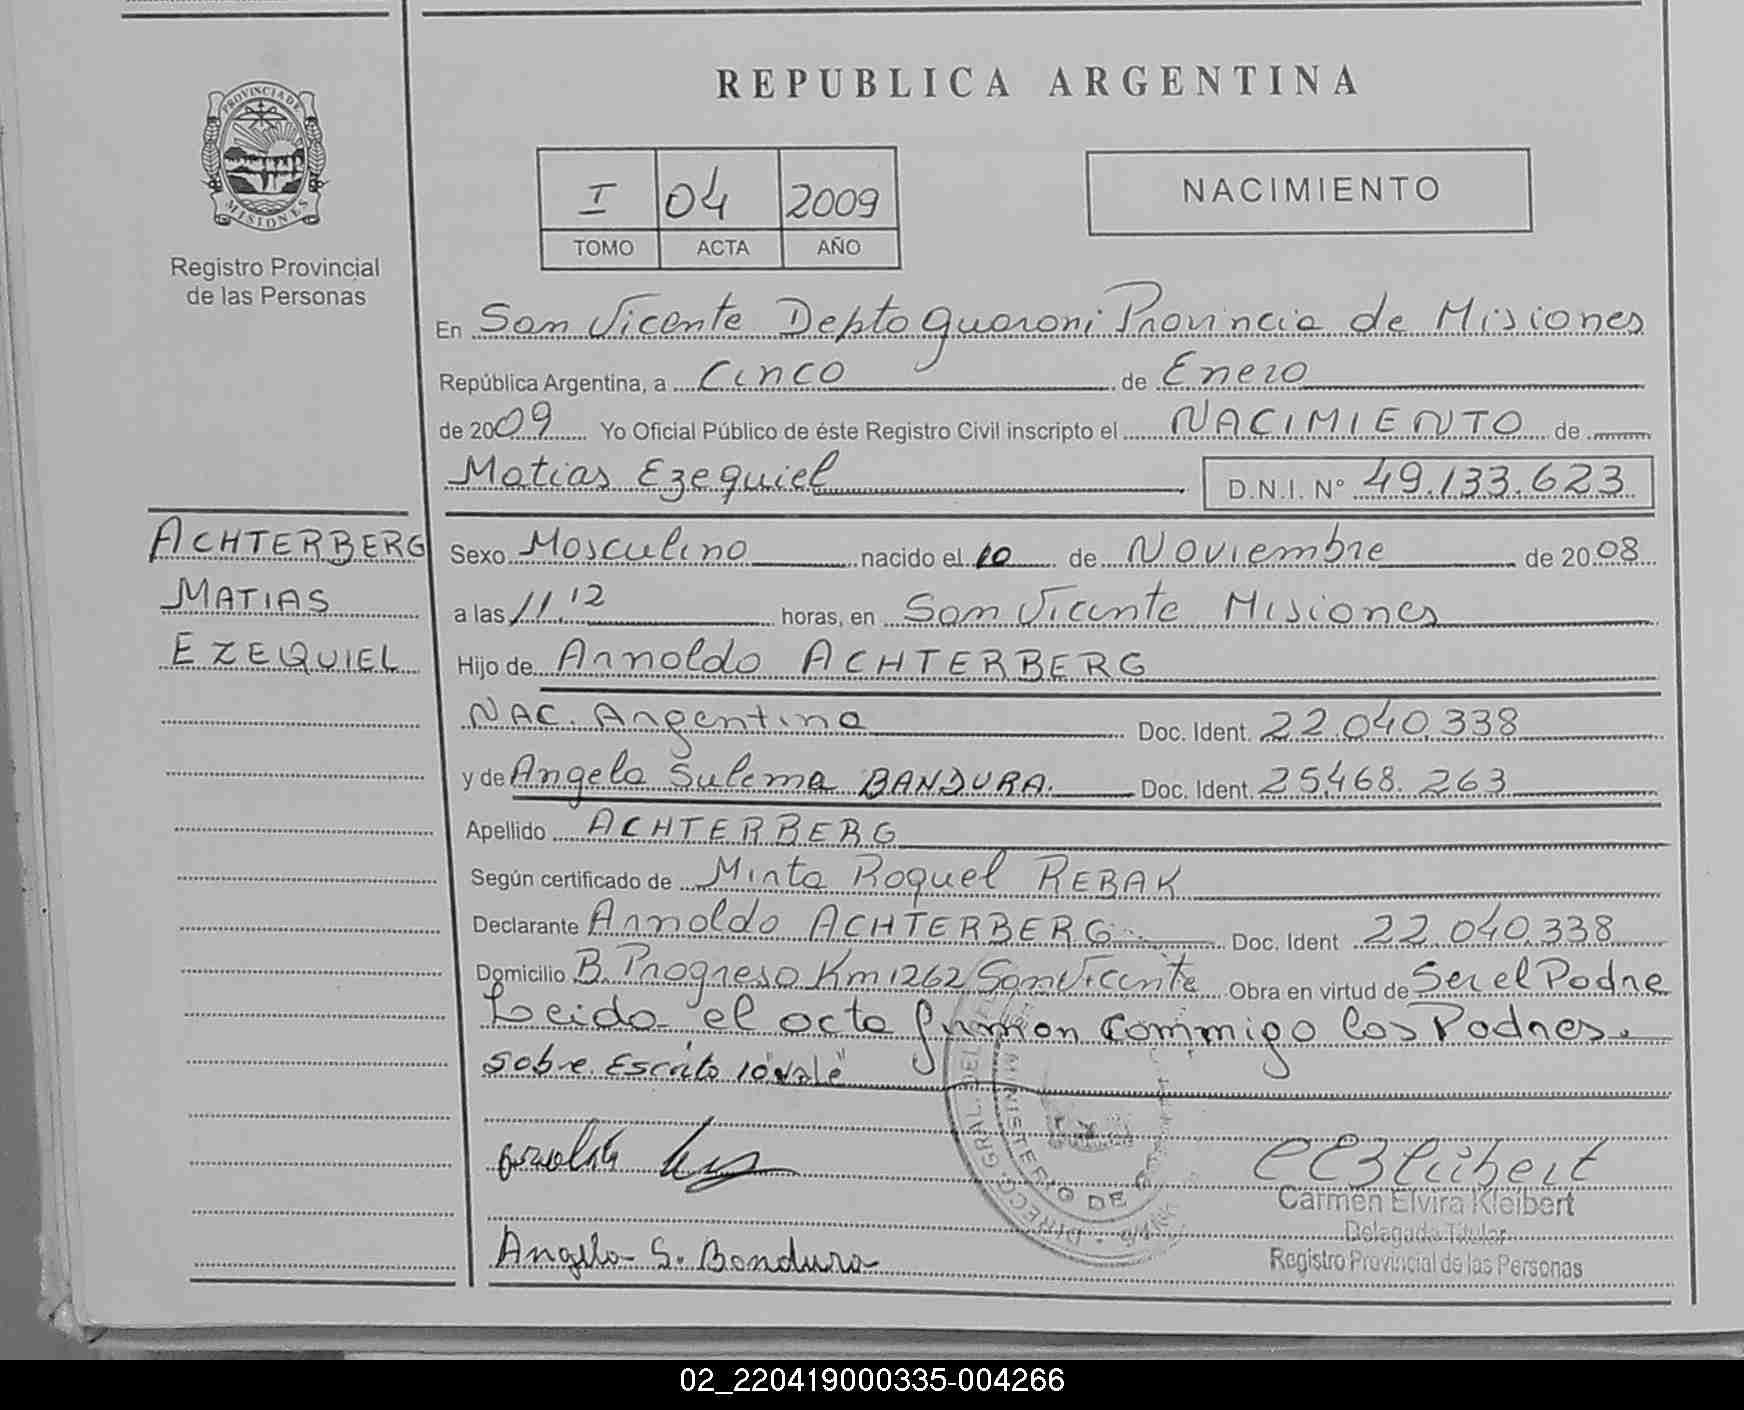 REPUBLICA ARGENTINA
PROVINCIA DE
MISIONES
Registro Provincial
de las Personas
I 04 2009
TOMO ACTA AÑO
NACIMIENTO
En San Vicente Depto guarani Provincia de Misiones
República Argentina, a Cinco de Enero
de 2009 Yo Oficial Público de éste Registro Civil inscripto el NACIMIENTO de
Matias Ezequiel D.N.I. N° 49.133.623
ACHTERBERG
MATIAS
EZEQUIEL
Sexo Masculino nacido el 10 de Noviembre de 2008
a las 11.12 horas, en San Vicente Misiones
Hijo de Arnoldo ACHTERBERG
NAC. Argentina Doc. Ident. 22.040.338
y de Angela Sulema BANDURA. Doc. Ident. 25.468.263
Apellido ACHTERBERG
Según certificado de Mirta Raquel REBAK
Declarante Arnoldo ACHTERBERG Doc. Ident 22.040.338
Domicilio B. Progreso Km 1262 San Vicente Obra en virtud de Ser el Padre
Leida el acta firman conmigo los Padres.
Sobre Escrito 10 "vale"
Angela S. Bandura
DIRECC. GRAL. DEL
MINISTERIO DE
Carmen Elvira Kleibert
Delegada Titular
Registro Provincial de las Personas
02_220419000335-004266